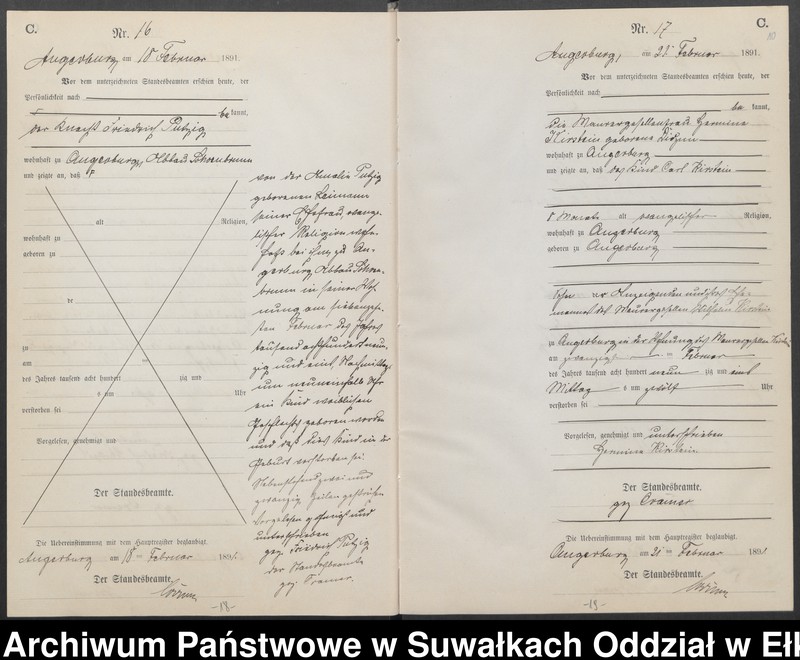 C.
Nr. 16
Angerburg, am 18 Februar 1891.
Vor dem unterzeichneten Standesbeamten erschien heute, der
Persönlichkeit nach
be kannt,
der Knecht Friedrich Putzig
wohnhaft zu Angerburg, Abbau
und zeigte an, daß
alt Religion,
wohnhaft zu
geboren zu
de
zu
am
des Jahres tausend acht hundert zig und
um Uhr
verstorben sei
Vorgelesen, genehmigt und
Der Standesbeamte.
Die Uebereinstimmung mit dem Hauptregister beglaubigt.
Angerburg am 18ten Februar 1891.
Der Standesbeamte.
-18-
von der Amalie Putzig
geborenen Reimann
seiner Ehefrau, evange-
lischer Religion wohn-
haft bei ihm zu An-
gerburg Abbau
in seiner Woh-
nung am siebenzehn-
ten Februar des Jahres
tausend achthundert neun-
zig und eins Nachmittags
um neuneinhalb Uhr
ein Kind weiblichen
Geschlechts geboren worden
und daß dies Kind in der
Geburt verstorben sei
Nebenstehend zwei und
zwanzig Zeilen gestrichen
Vorgelesen genehmigt und
unterschrieben
gez. Friedrich Putzig
der Standesbeamte
gez. Cramer.
C.
Nr. 17
10
Angerburg, am 21 Februar 1891.
Vor dem unterzeichneten Standesbeamten erschien heute, der
Persönlichkeit nach
be kannt,
die Maurergesellenfrau Hermine
Kirstein geborene
wohnhaft zu Angerburg
und zeigte an, daß das Kind Carl Kirstein
8 Monate alt evangelischer Religion,
wohnhaft zu Angerburg
geboren zu Angerburg
Sohn der Anzeigenden und ihres Ehe-
mannes des Maurergesellen Wilhelm Kirstein
zu Angerburg in der Wohnung des Maurergesellen Kirstein
am zwanzigsten Februar
des Jahres tausend acht hundert neun zig und eins
Mittag s um zwölf Uhr
verstorben sei
Vorgelesen, genehmigt und unterschrieben
Hermine Kirstein
Der Standesbeamte.
gez Cramer
Die Uebereinstimmung mit dem Hauptregister beglaubigt.
Angerburg am 21ten Februar 1891
Der Standesbeamte.
-19-
Archiwum Państwowe w Suwałkach Oddział w Ełk